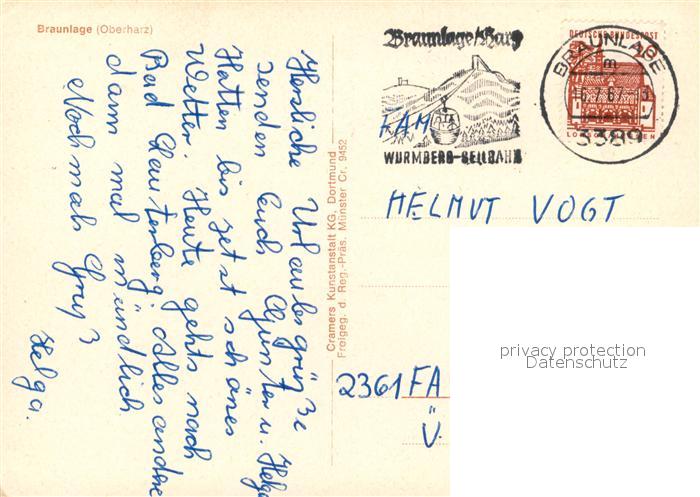 Braunlage (Oberharz)
Herzliche Urlaubsgrüße
senden Euch Günter u. Helga
Hatten bis jetzt schönes
Wetter. Heute gehts nach
Bad Lauterberg. Alles andere
dann mal mündlich
Nochmals Gruß
Helga.
Cramers Kunstanstalt KG, Dortmund
Freigeg. d. Reg.-Präs. Münster Cr. 9452
Braunlage/Harz
WURMBERG-SEILBAHN
DEUTSCHE BUNDESPOST
BRAUNLAGE
m
3389
FAM
HELMUT VOGT
2361 FA
Ü.
privacy protection
Datenschutz